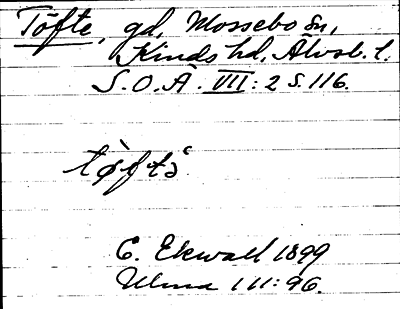 Töfte, gd, Mossebo sn,
Kinds hd, Älvsb. l.
S.O.Ä. VII: 2 S. 116.
tø̀ftä
E. Ekwall 1899
Ulma 111: 96.